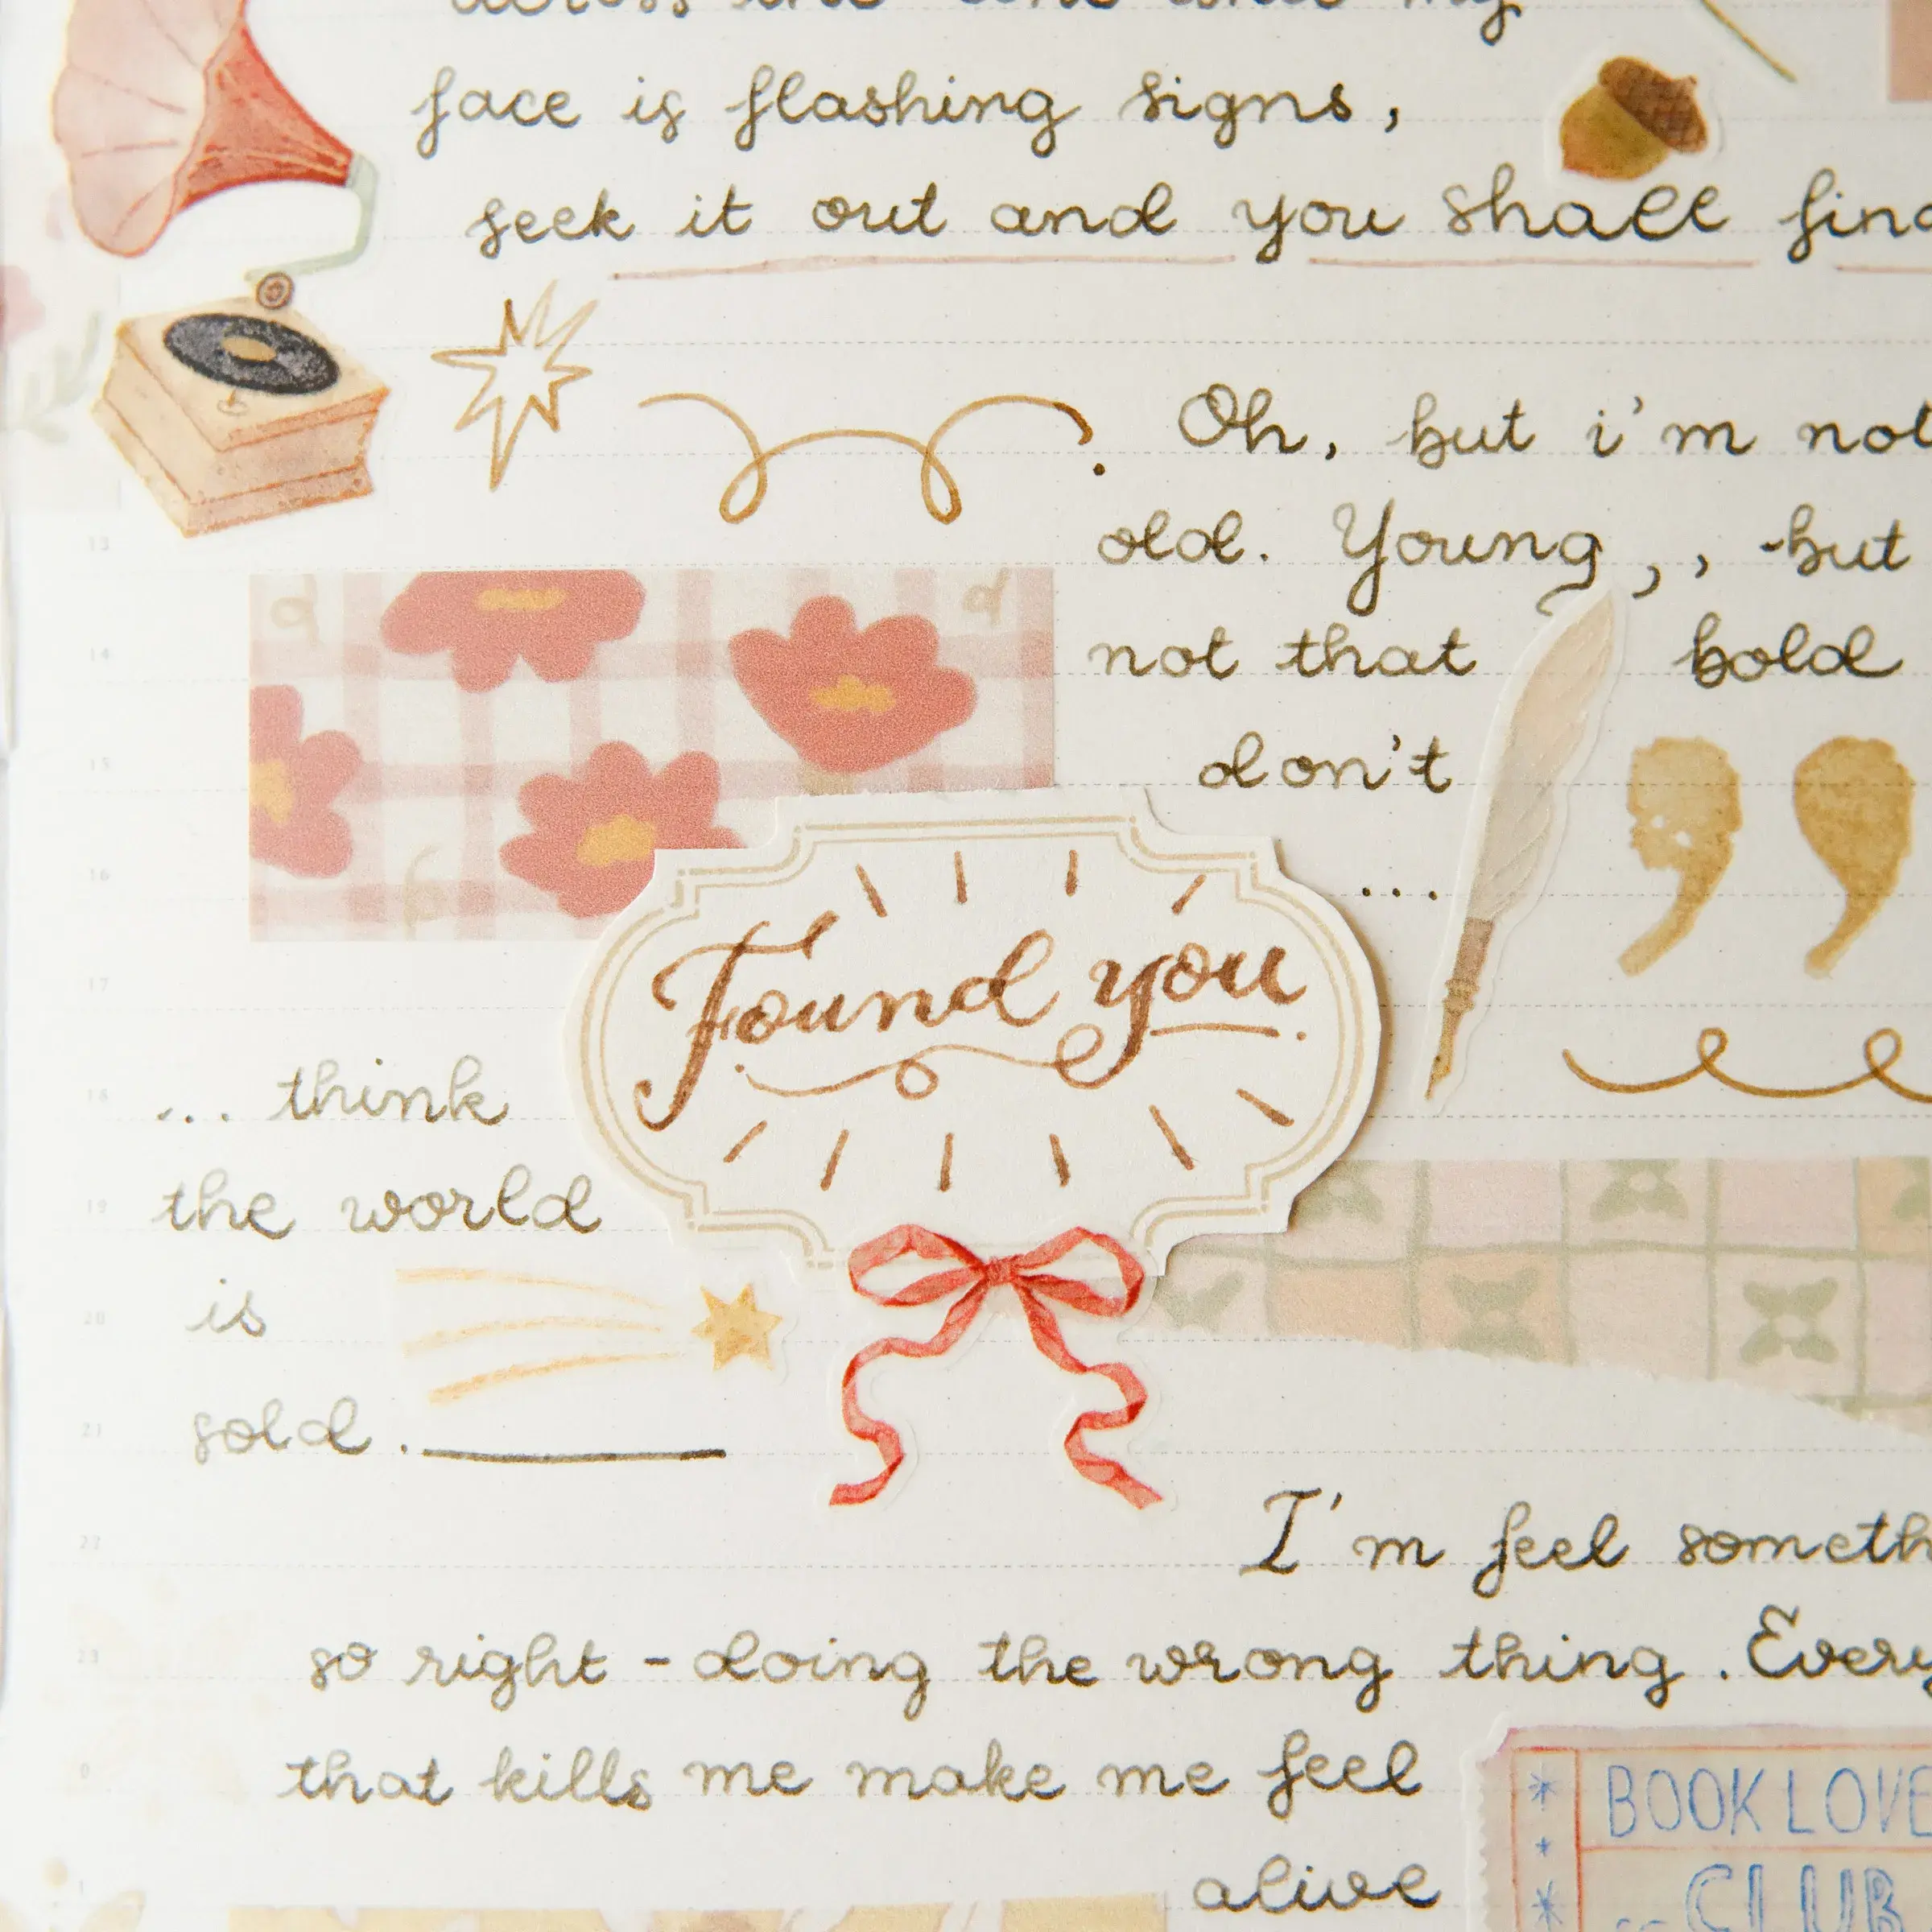 across the line and my
face is flashing signs,
seek it out and you shall find
Oh, but i'm not
old. Young,, -but
not that bold
don't
...
Found you
... think
the world
is
sold.
I'm feel someth
so right - doing the wrong thing. Every
that kills me make me feel
alive
BOOK LOVE
CLUB
13
14
15
16
17
18
19
20
21
22
23
0
1